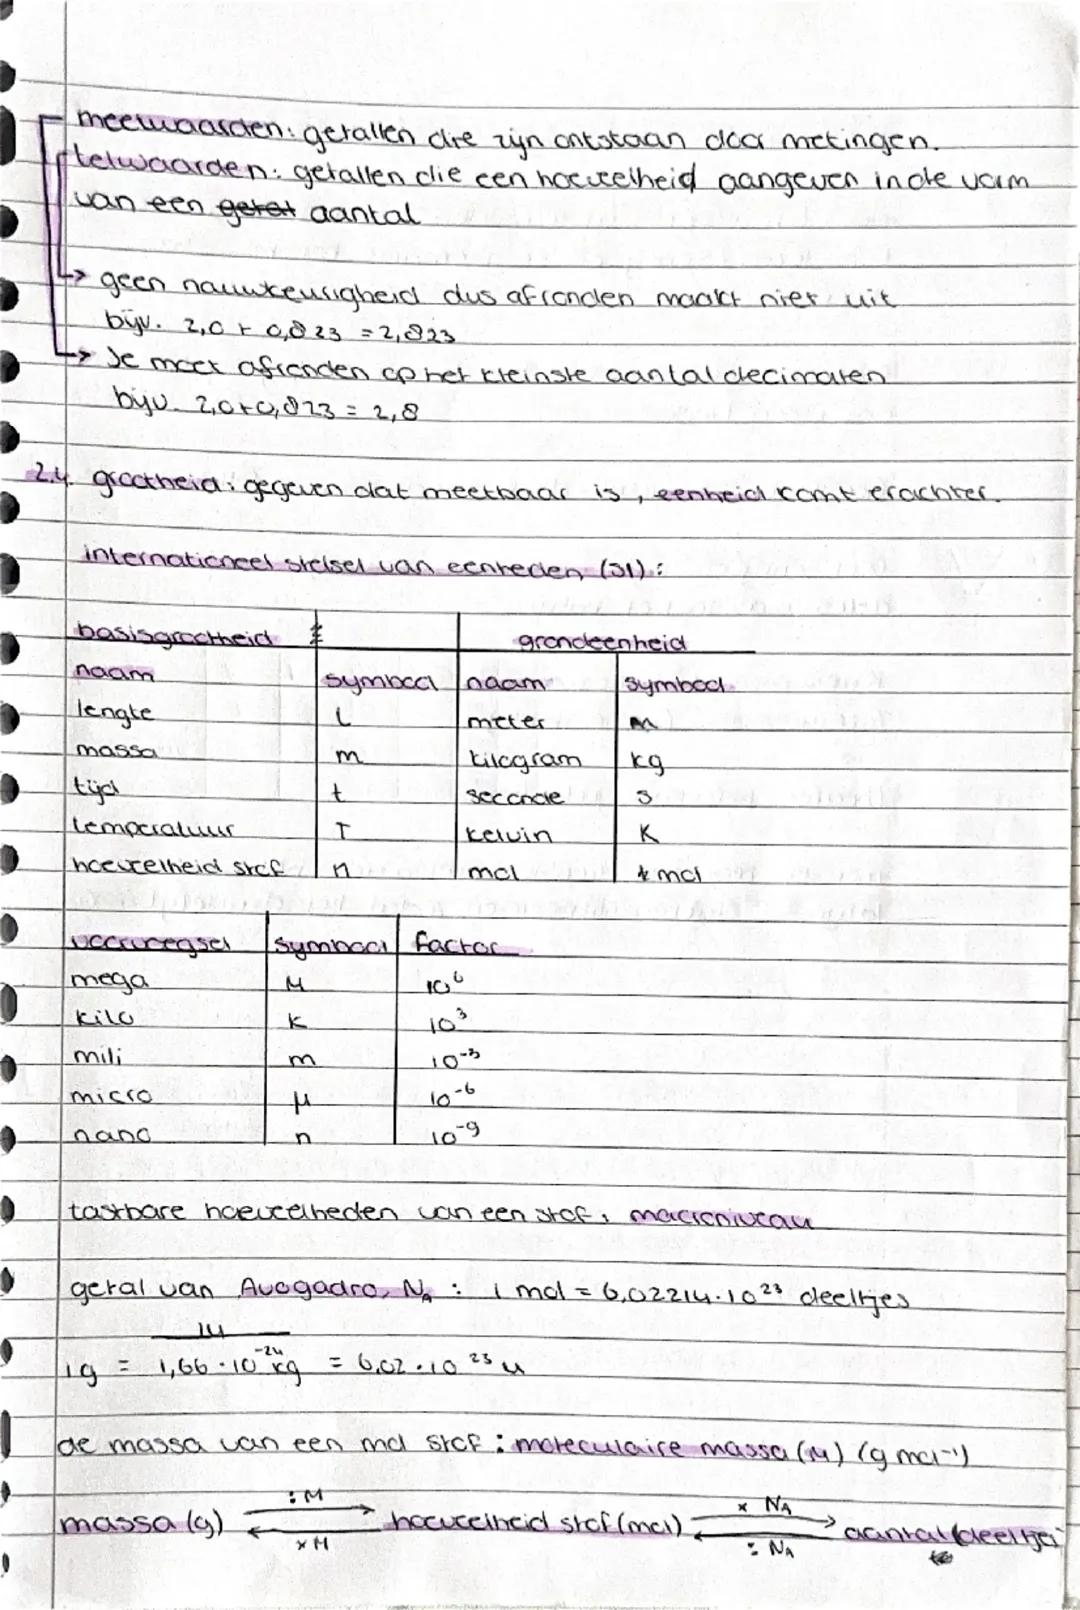 meetwaarden: getallen die zijn ontstaan door metingen.
telwaarden: getallen die een hoeveelheid aangeven in de vorm
van een getal aantal
→ geen nauwkeurigheid dus afronden maakt niet uit
bijv. 2,0 + 0,823 = 2,823
→ Je moet afronden op het kleinste aantal decimalen
bijv. 2,0+0,823 = 2,8
2.4 grootheid: gegeven dat meetbaar is, eenheid komt erachter.
internationeel stelsel van eenheden (SI):
basisgrootheid grondeenheid
naam symbool naam symbool
lengte l meter m
massa m kilogram kg
tijd t seconde s
temperatuur T kelvin K
hoeveelheid stof n mol mol
voorvoegsel symbool factor
mega M 10⁶
kilo k 10³
mili m 10⁻³
micro µ 10⁻⁶
nano n 10⁻⁹
tastbare hoeveelheden van een stof: macroniveau
getal van Avogadro, N_A : 1 mol = 6,02214·10²³ deeltjes
1u
1g = 1,66·10⁻²⁴kg = 6,02·10²³ u
de massa van een mol stof: moleculaire massa (M) (g mol⁻¹)
: M × N_A
massa (g) ⇄ hoeveelheid stof (mol) ⇄ aantal deeltjes
× M : N_A